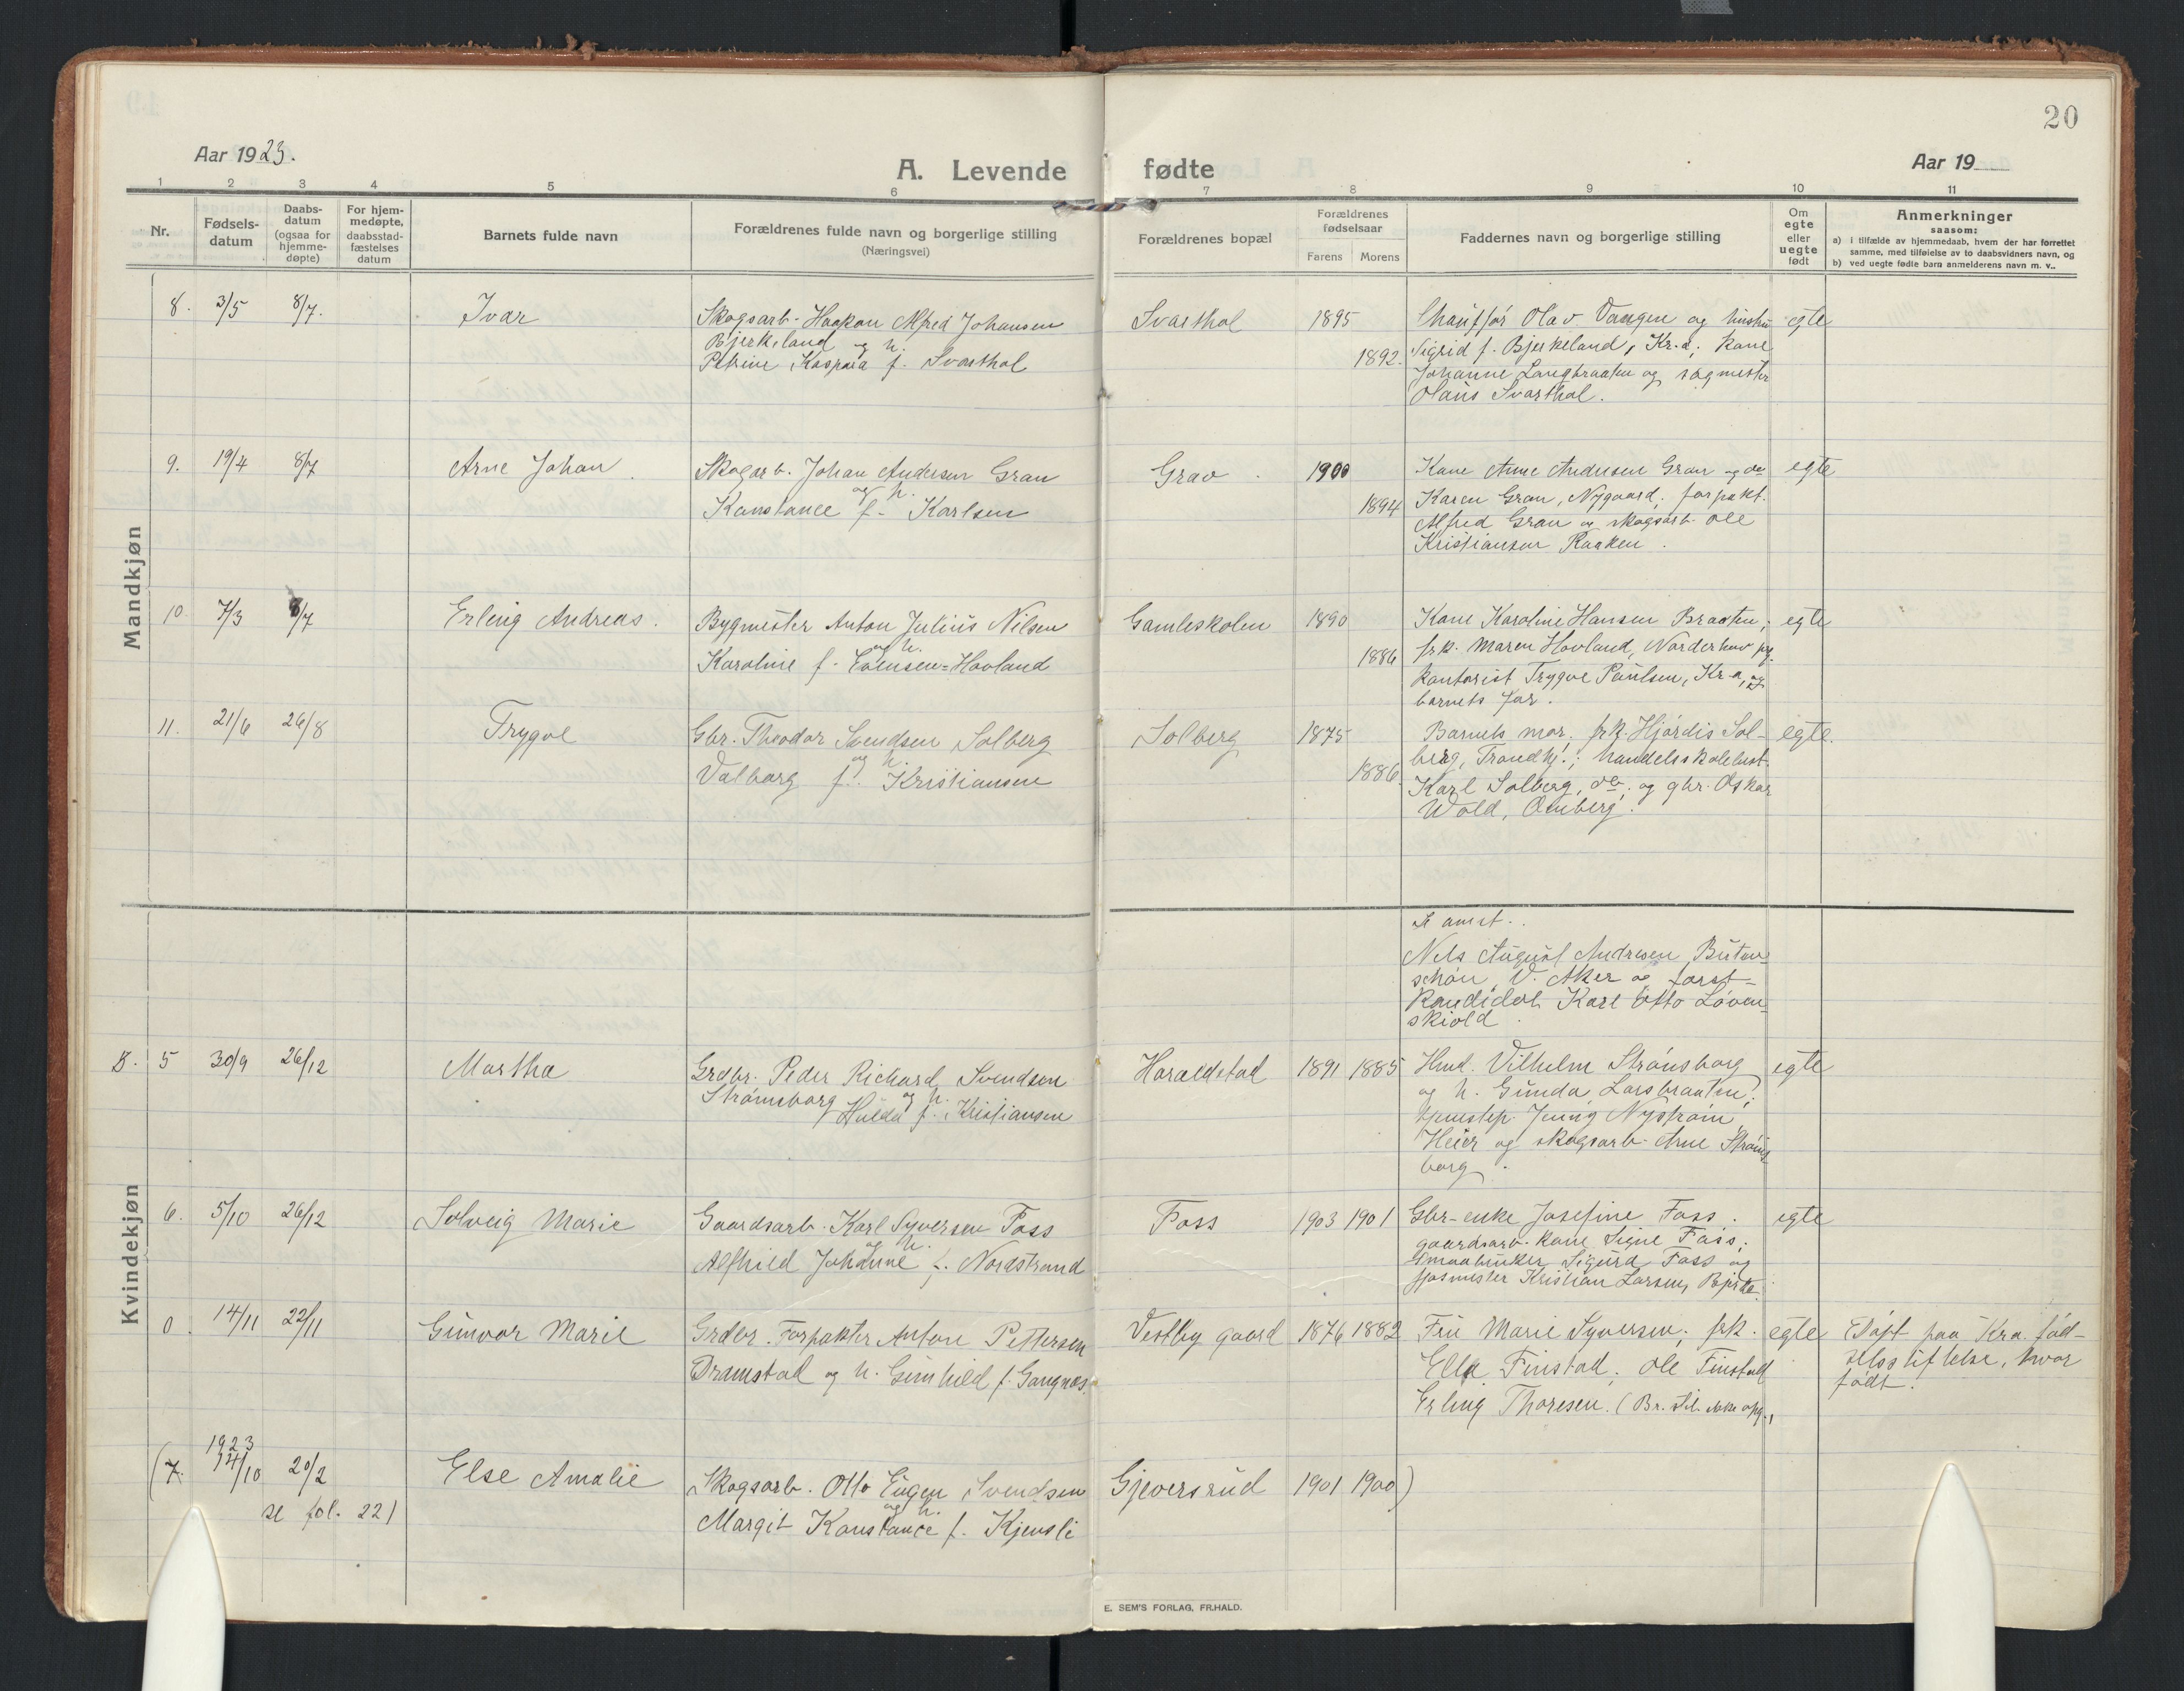 20
Aar 1923.
A. Levende fødte
Aar 19
1 2 3 4 5 6 7 8 9 10 11
Nr.
Fødsels-
datum
Daabs-
datum
(ogsaa for
hjemme-
døpte)
For hjem-
medøpte,
daabsstad-
fæstelses
datum
Barnets fulde navn
Forældrenes fulde navn og borgerlige stilling
(Næringsvei)
Forældrenes bopæl
Forældrenes
fødselsaar
Farens Morens
Faddernes navn og borgerlige stilling
Om
egte
eller
uegte
født
Anmerkninger
saasom:
a) i tilfælde av hjemmedaab, hvem der har forrettet
samme, med tilføielse av to daabsvidners navn, og
b) ved uegte fødte barn anmelderens navn m. v..
Mandkjøn
8. 3/5 8/7. Ivar
Skogsarb. Haakon Alfred Johansen
Bjerkeland og h.
Petrine Kaspara f. Svarthol
Svarthol 1895 1892.
Chauffør Olav Vangen og hustru
Sigrid f. Bjerkeland, Kr.a; kone
Johanne Langbraaten og sagmester
Olaus Svarthol.
egte
9. 19/4 8/7 Arne Johan.
Skogarb. Johan Andersen Gran
og h.
Konstance f. Karlsen
Grav 1900 1894
Kone Anne Andersen Gran og do
Karen Gran, Nygaard; forpakt.
Alfred Gran og skogsarb. Ole
Kristiansen Raaken.
egte
10. 7/3 8/7 Erling Andreas.
Bygmester Anton Julius Nilsen
og h.
Karoline f. Evensen=Hovland
Gamleskolen 1890 1886
Kone Karoline Hansen Braaten;
frk. Maren Hovland, Norderhov
kontorist Trygve Paulsen, Kr.a, og
barnets far.
egte
11. 21/6 26/8 Trygve
Gbr. Theodor Svendsen Solberg
og h.
Valborg f. Kristiansen
Solberg 1875 1886.
Barnets mor. frk. Hjørdis Sol-
berg, Trondhj.; handelsskolebest.
Karl Solberg, do, og gbr. Oskar
Wold, Omberg.
egte.
Kvindekjøn
Nils August Andresen Buten-
schøn, V. Aker og forst-
kandidat Karl Otto Løven-
skiold.
D. 5 30/9 26/12 Martha
Grdbr. Peder Richard Svendsen
Strømsborg og h.
Hulda f. Kristiansen
Haraldstad 1891 1885
Hmd. Vilhelm Strømsborg
og h. Gunda, Larsbraaten;
tjenestep. Jenny Nystrøm
Heier og skogsarb. Arne Strøms-
borg.
egte
6. 5/10 26/12 Solveig Marie
Gaardsarb. Karl Syversen Foss
og h.
Alfhild Johanne f. Nordstrand
Foss 1903 1901
Gbr-enke Josefine Foss.
gaardsarb. kone Signe Foss;
smaabruker Sigurd Foss og
fjøsmester Kristian Larsen,
egte
0. 14/11 22/11 Gunvor Marie
Grdbr. Forpakter Anton Pettersen
Dramstad og h. Gunhild f. Gangnæs.
Vestby gaard 1876 1882
Fru Marie Syversen; frk.
Ella Finstad; Ole Finstad
Erling Thoresen. (Br. stil. ikke opg.,
egte
Døpt paa Kra. fød-
selsstiftelse, hvor
født.
(7. 1923
14/10 20/2 Else Amalie
se fol. 22)
Skogsarb. Otto Eugen Svendsen
og h.
Margit Konstance f. Kjensli
Gjeversrud 1901 1900)
E. SEM'S FORLAG, FR.HALD.